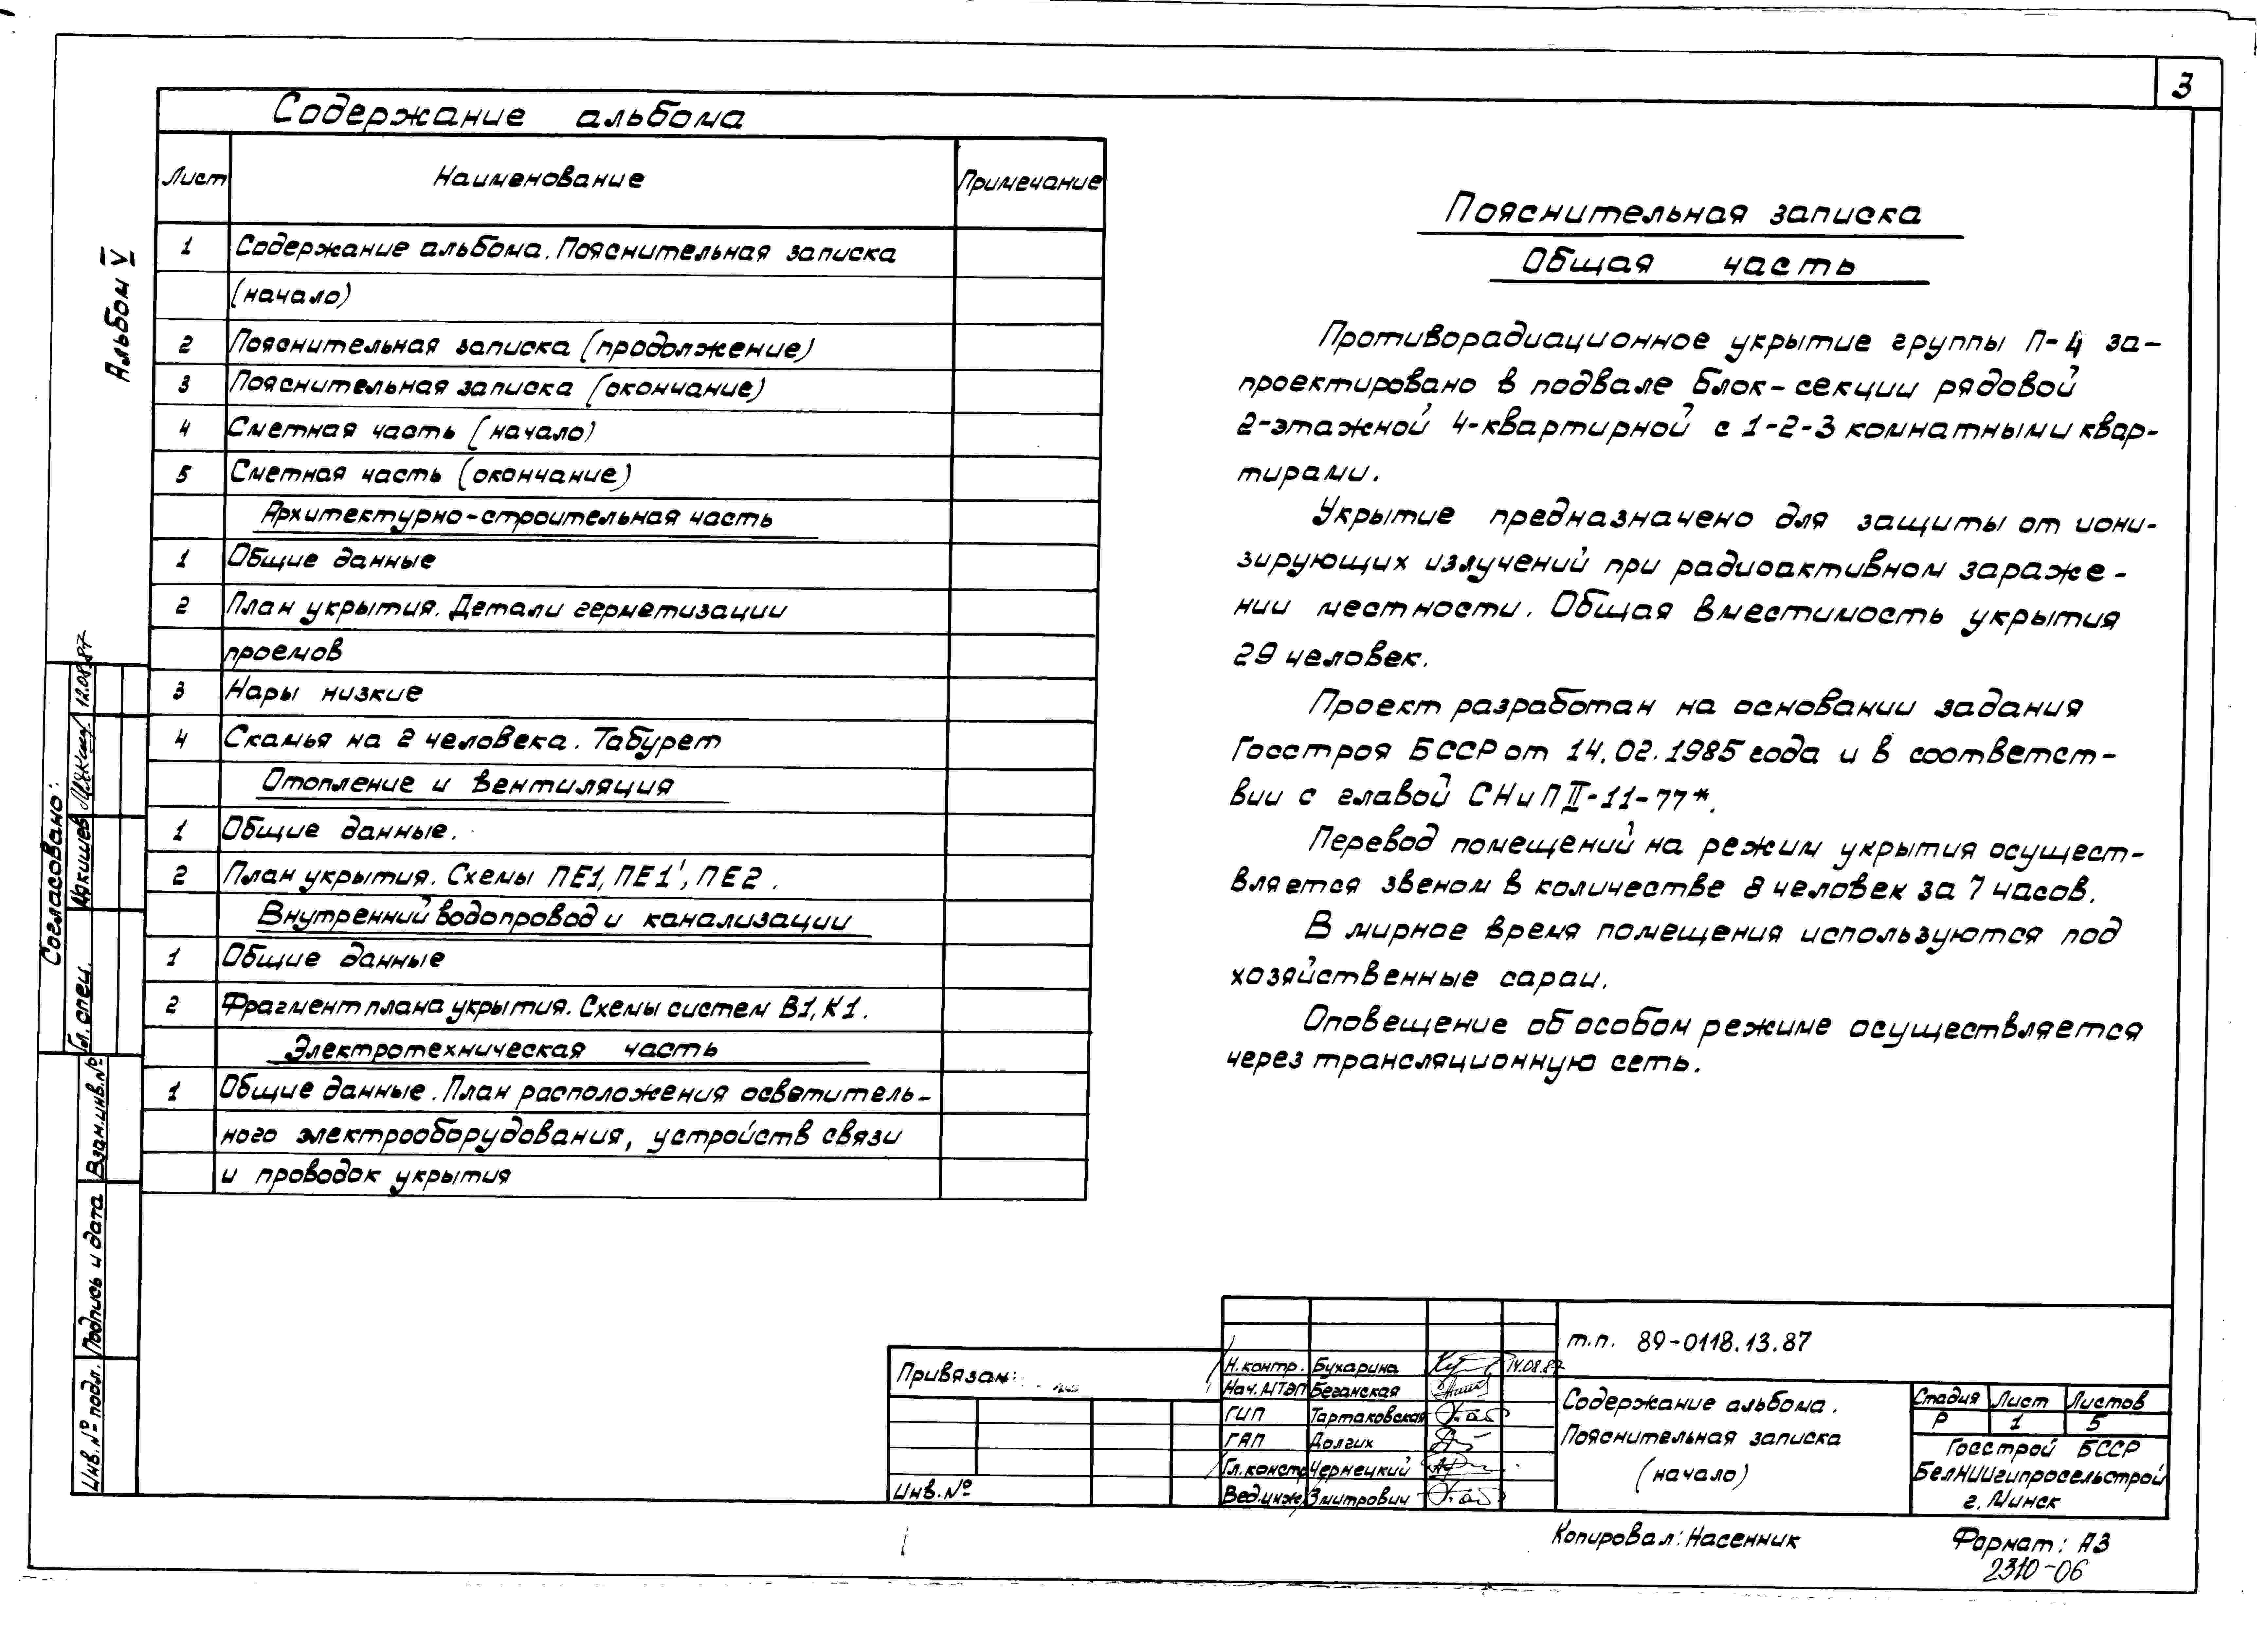 3
Содержание альбома
Лист Наименование Примечание
1 Содержание альбома. Пояснительная записка
(начало)
2 Пояснительная записка (продолжение)
3 Пояснительная записка (окончание)
4 Сметная часть (начало)
5 Сметная часть (окончание)
Архитектурно-строительная часть
1 Общие данные
2 План укрытия. Детали герметизации
проемов
3 Нары низкие
4 Скамья на 2 человека. Табурет
Отопление и вентиляция
1 Общие данные.
2 План укрытия. Схемы ПЕ1, ПЕ1', ПЕ2.
Внутренний водопровод и канализации
1 Общие данные
2 Фрагмент плана укрытия. Схемы систем В1, К1.
Электротехническая часть
1 Общие данные. План расположения осветитель-
ного электрооборудования, устройств связи
и проводок укрытия
Альбом V
Согласовано:
Гл. спец. 12.08.87
Взам. инв. №
Подпись и дата
Инв. № подл.
Пояснительная записка
Общая часть
Противорадиационное укрытие группы П-4 за-
проектировано в подвале блок-секции рядовой
2-этажной 4-квартирной с 1-2-3 комнатными квар-
тирами.
Укрытие предназначено для защиты от иони-
зирующих излучений при радиоактивном зараже-
нии местности. Общая вместимость укрытия
29 человек.
Проект разработан на основании задания
Госстроя БССР от 14.02.1985 года и в соответст-
вии с главой СНиП II-11-77*.
Перевод помещений на режим укрытия осущест-
вляется звеном в количестве 8 человек за 7 часов.
В мирное время помещения используются под
хозяйственные сараи.
Оповещение об особом режиме осуществляется
через трансляционную сеть.
Привязан:
Инв. №
Н. контр. Бухарина 14.08.87
Нач. МТЭП Беганская
ГИП Тартаковская
ГАП Долгих
Гл. констр Чернецкий
Вед. инж. Змитрович
т.п. 89-0118.13.87
Содержание альбома.
Пояснительная записка
(начало)
Стадия Лист Листов
Р 1 5
Госстрой БССР
БелНИИгипросельстрой
г. Минск
Копировал: Насенник
Формат: А3
2310-06